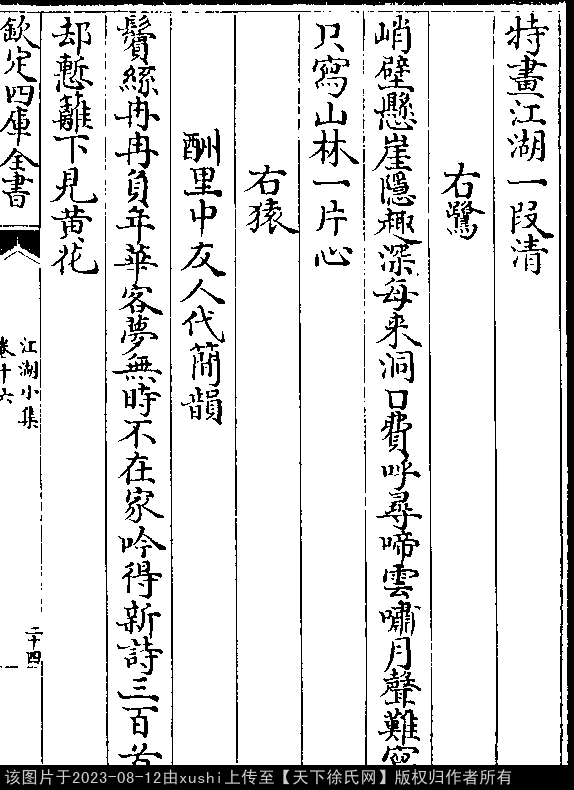 特畫江湖一段清
右鷺
峭壁懸崖隱趣深每来洞口費呼尋啼雲嘯月聲難寫
只寫山林一片心
右猿
酬里中友人代蕳韻
鬢絲冉冉負年華客夢無時不在家吟得新詩三百首
却慙籬下見黄花
欽定四庫全書
江湖小集
卷十六
二十四
该图片于2023-08-12由xushi上传至【天下徐氏网】版权归作者所有